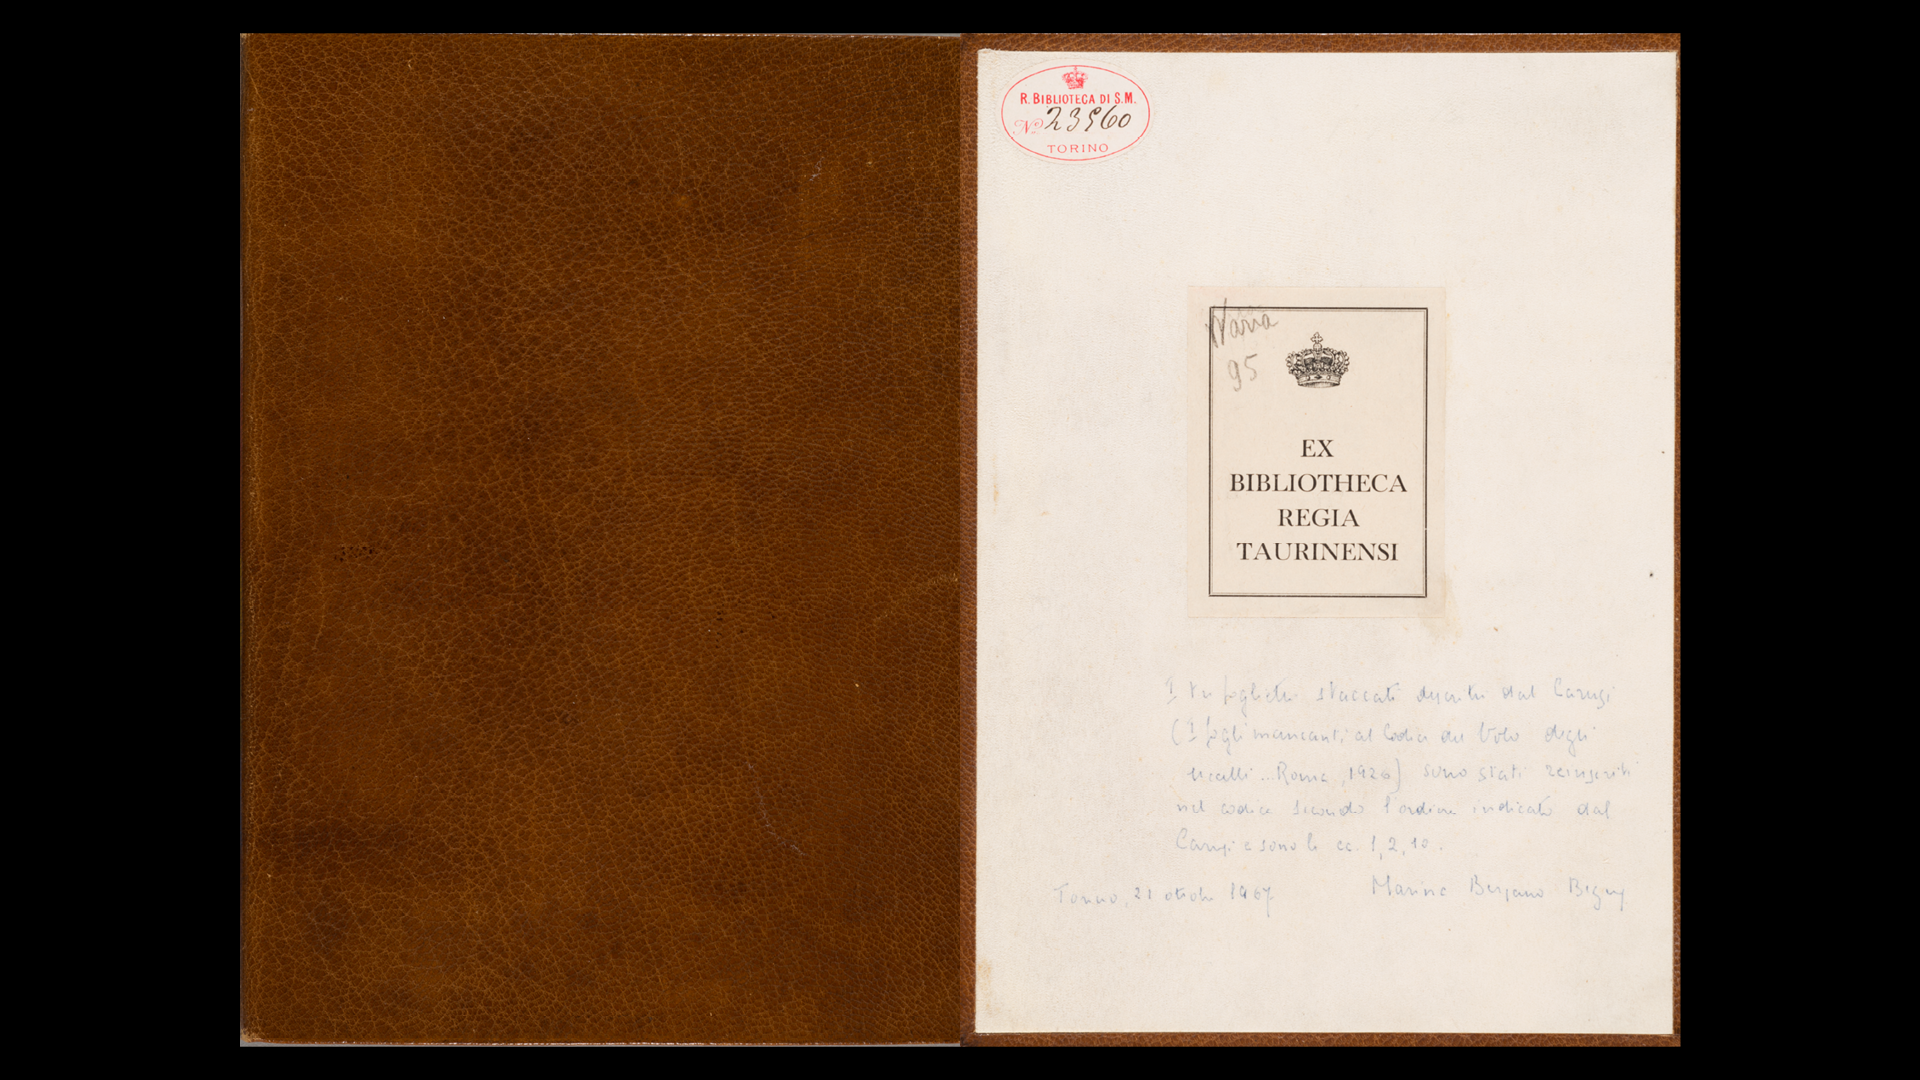 R. BIBLIOTECA DI S.M.
No 23560
TORINO
Varia
95
EX
BIBLIOTHECA
REGIA
TAURINENSI
I tre foglietti staccati descritti dal Carusi
(I fogli mancanti al Codice del Volo degli
uccelli... Roma, 1926) sono stati reinseriti
nel codice secondo l'ordine indicato dal
Carusi e sono le cc. 1, 2, 10.
Torino, 21 ottobre 1967 Marina Bersano Begey